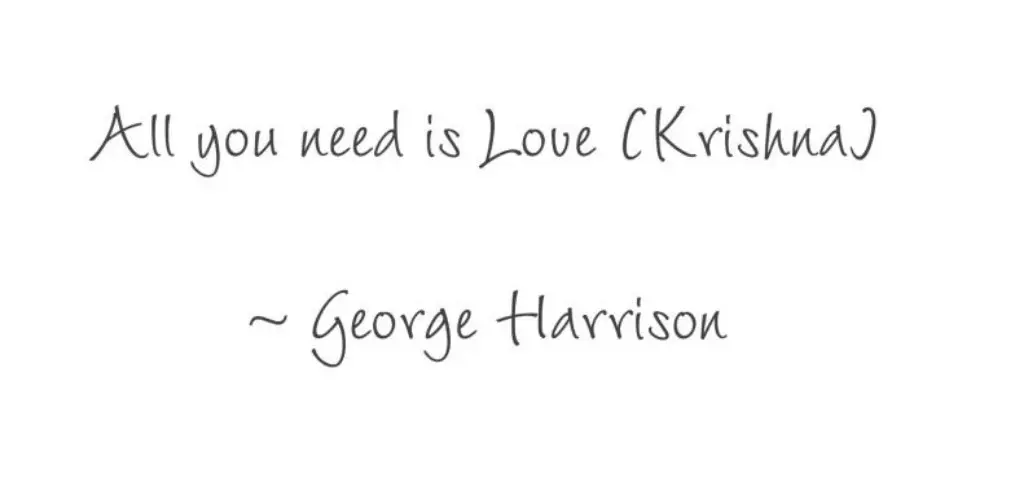 All you need is Love (Krishna)
~ George Harrison